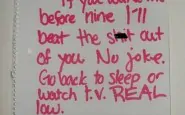 If you wake me
before nine I'll
beat the shit out
of you. No joke.
Go back to sleep or
watch t.v. REAL
low.